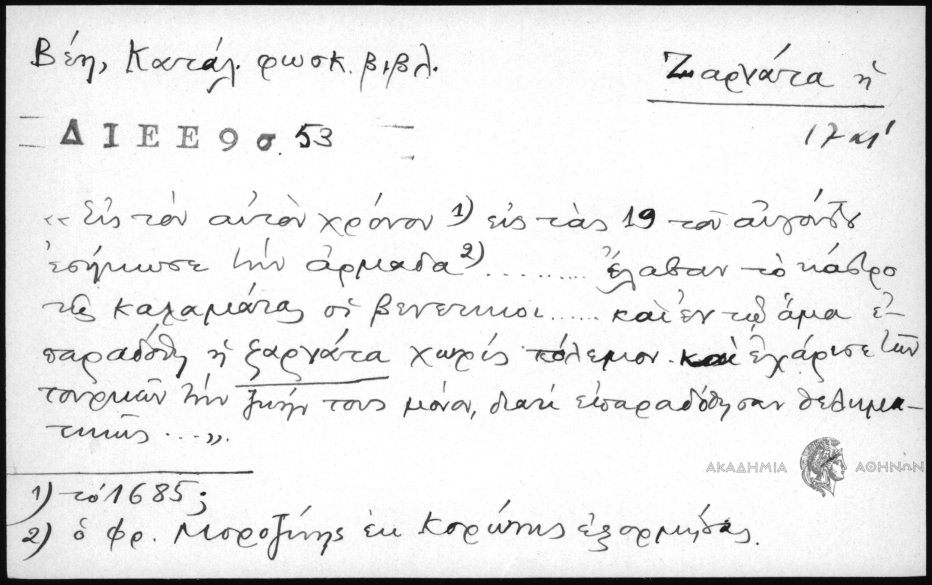 Βέη, Κατάλ. φωσκ. βιβλ.
Ζαρνάτα ἡ
ΔΙΕΕ 9 σ. 53
17 αι'
«Εἰς τὸν αὐτὸν χρόνον 1) εἰς τὰς 19 τοῦ αὐγούστου
ἐσήκωσε τὴν ἁρμάδα 2) ......... ἔλαβαν τὸ κάστρο
τῆς Καλαμάτας οἱ βενετικοι ...... καὶ ἐν τῷ ἅμα ἐ-
παραδόθη ἡ ζαρνάτα χωρὶς πόλεμον καὶ ἐχάρισε τῶν
τουρκῶν τὴν ζωήν τους μόνον, διατὶ ἐπαραδόθησαν θελημα-
τικῶς ...».
ΑΚΑΔΗΜΙΑ ΑΘΗΝΩΝ
1) τὸ 1685;
2) ὁ Φρ. Μοροζίνης ἐκ Κορώνης ἐξορμήσας.